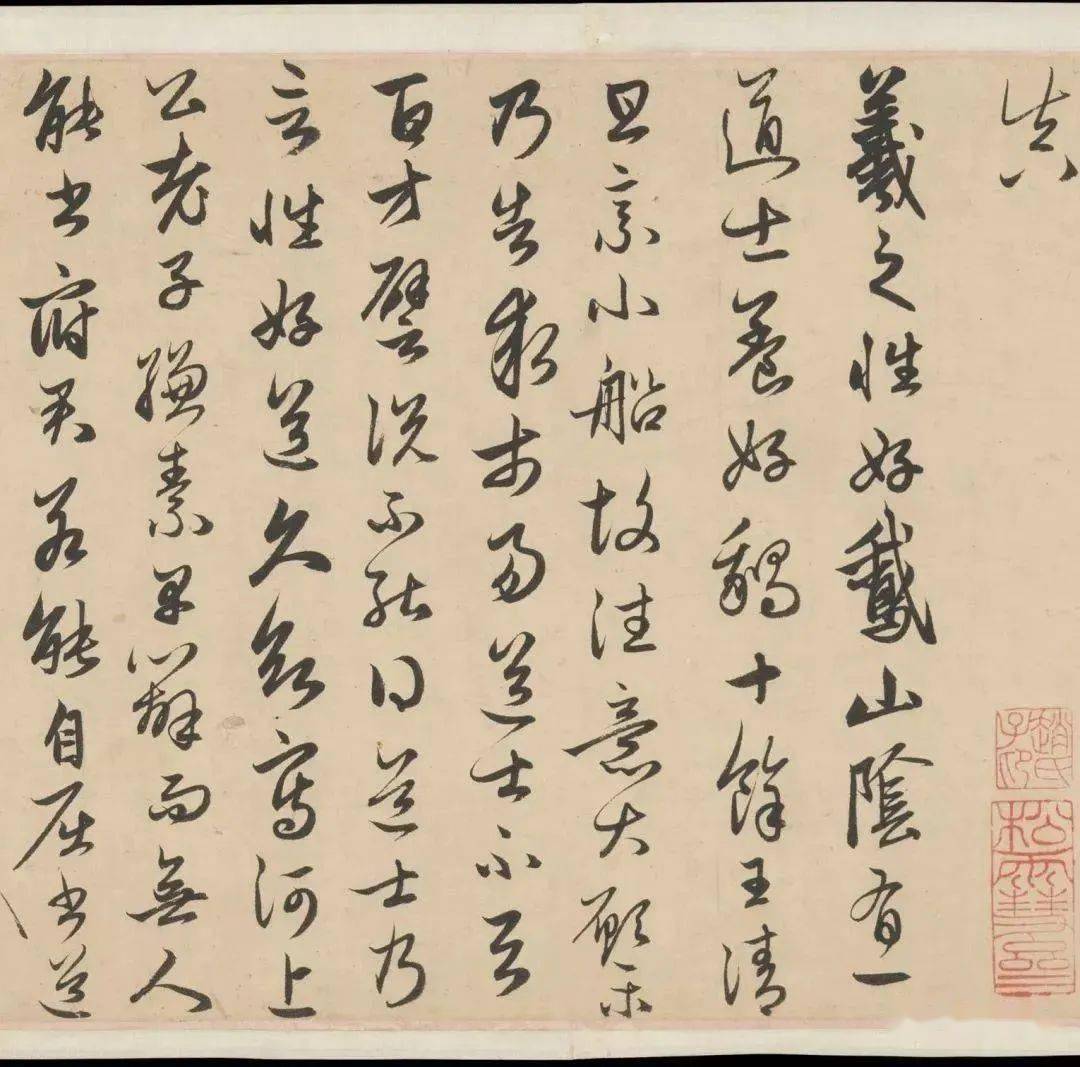 羲之性好鵞山陰有一
道士養好鵝十餘王清
旦乘小船故往意大願樂
乃告求市易道士不與
百方譬說不能得道士乃
言性好道久欲寫河上
公老子縑素早辦而無人
能書府君若能自屈書道